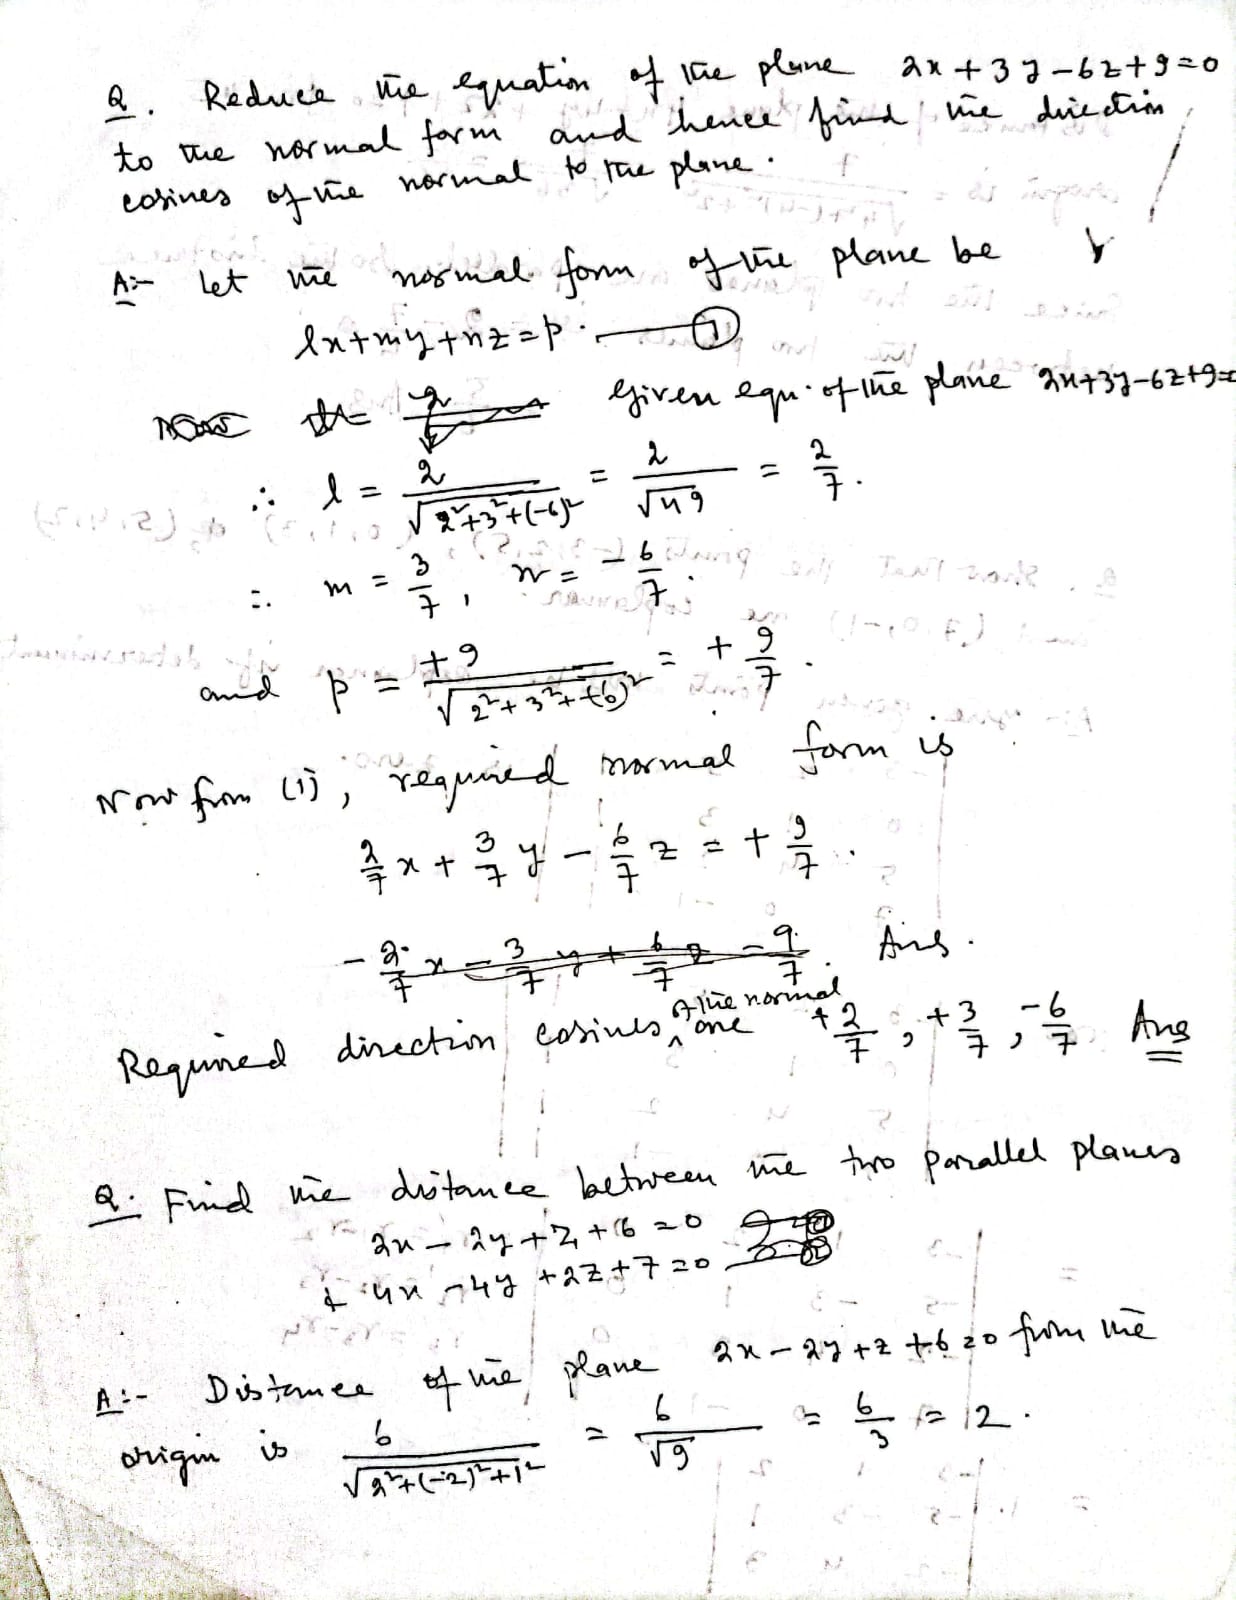 Q. Reduce the equation of the plane 2x + 3y - 6z + 9 = 0
to the normal form and hence find the direction
cosines of the normal to the plane.
A:- Let the normal form of the plane be
lx + my + nz = p. — (1)
Given equ. of the plane 2x+3y-6z+9=0
∴ l = 2/√(2²+3²+(-6)²) = 2/√49 = 2/7.
∴ m = 3/7, n = -6/7.
and p = +9/√(2²+3²+(-6)²) = +9/7.
Now from (1), required normal form is
2/7 x + 3/7 y - 6/7 z = + 9/7.
-2/7 x - 3/7 y + 6/7 z = 9/7. Ans.
Required direction cosines of the normal are +2/7, +3/7, -6/7 Ans
Q. Find the distance between the two parallel planes
2x - 2y + z + 6 = 0
& 4x - 4y + 2z + 7 = 0
A:- Distance of the plane 2x - 2y + z + 6 = 0 from the
origin is 6/√(2²+(-2)²+1²) = 6/√9 = 6/3 = 2.